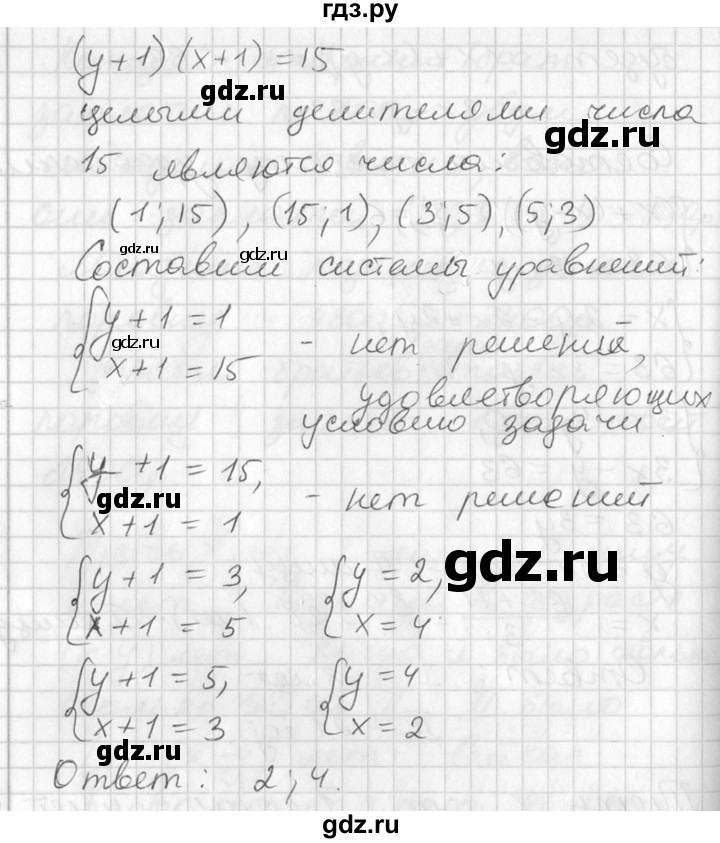 гдз.ру
(y+1)(x+1)=15
gdz.ru
целыми делителями числа
gdz.ru
15 являются числа:
(1;15), (15;1), (3;5), (5;3)
gdz.ru
gdz.ru
Составим системы уравнений:
{y+1=1
gdz.ru
x+1=15
- нет решений,
удовлетворяющих
условию задачи
{y+1=15,
gdz.ru
x+1=1
- нет решений
gdz.ru
{y+1=3,
x+1=5
{y=2,
x=4
{y+1=5,
x+1=3
{y=4
x=2
gdz.ru
Ответ: 2; 4.
gdz.ru
gdz.ru